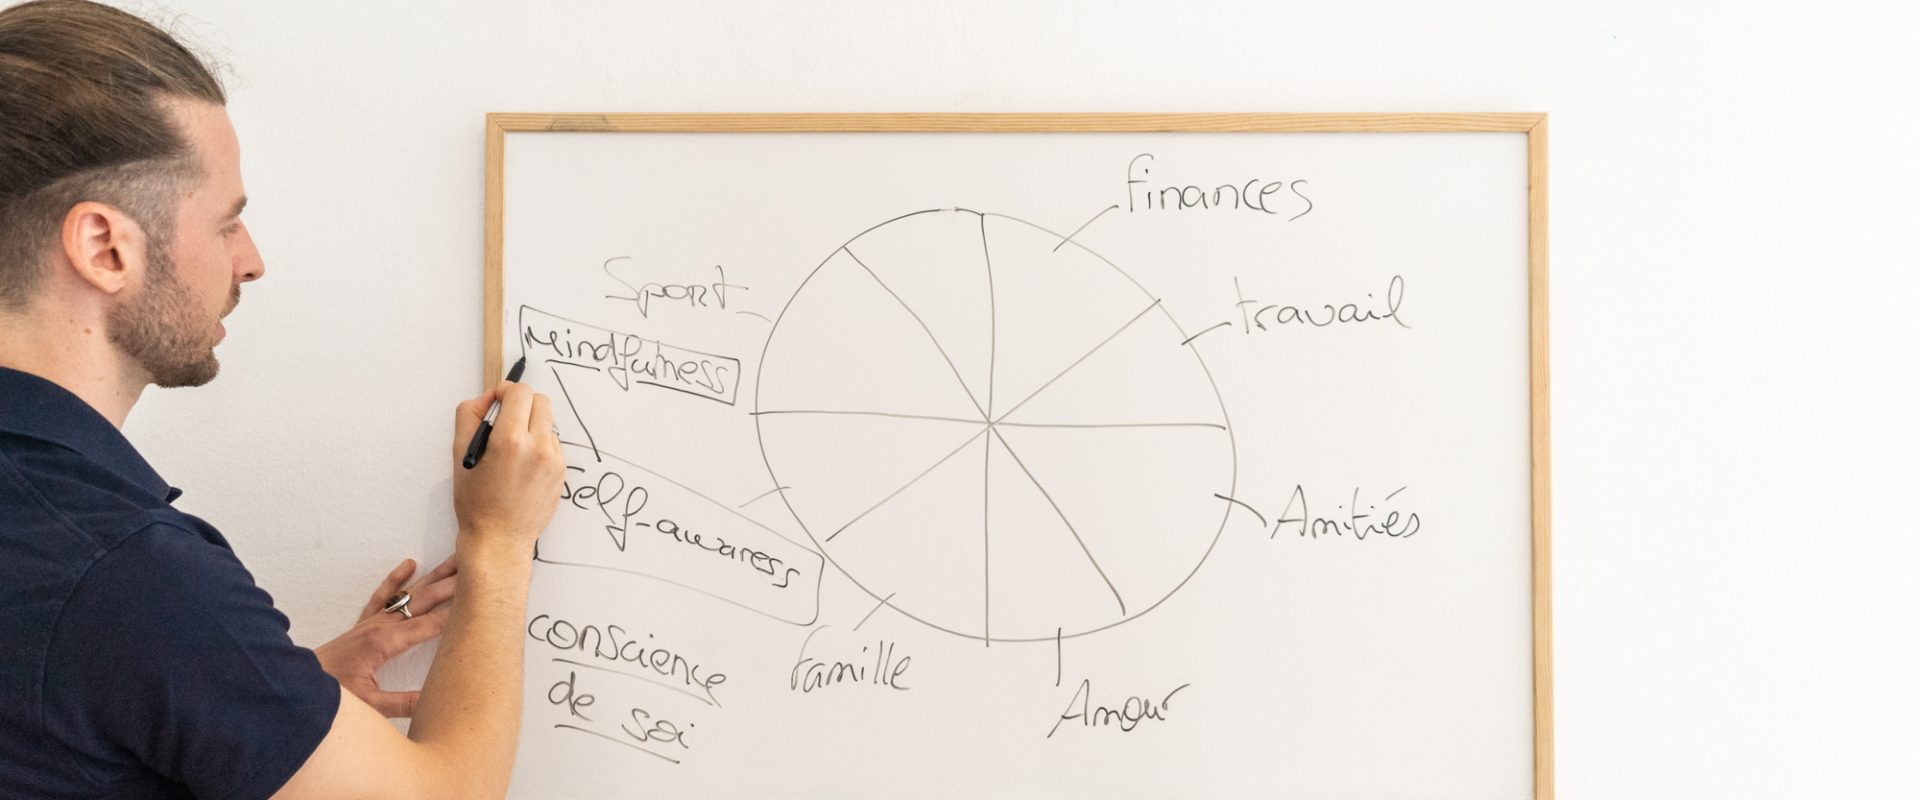 finances
travail
Sport
Mindfulness
Self-awaress
Amitiés
conscience
de soi
famille
Amour